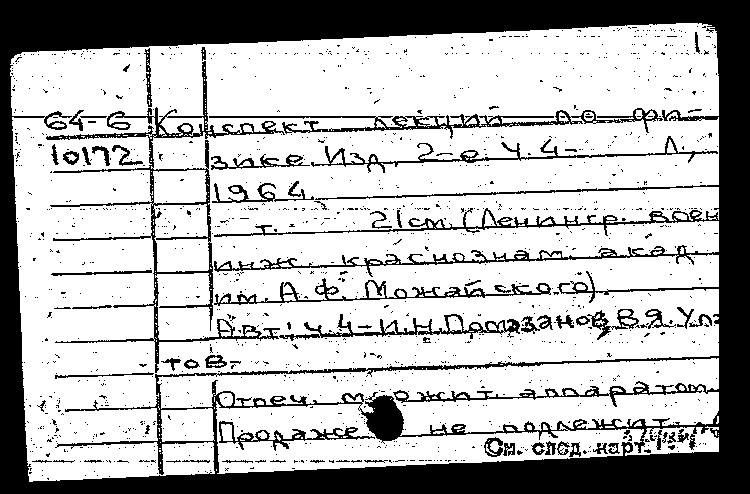 1
64-6 Конспект лекций по фи-
10172 зике. Изд. 2-е. Ч. 4- Л.,
1964.
т. 21см. (Ленингр. воен
инж. краснознам. акад.
им. А. Ф. Можайского).
Авт: ч. 4- И. Н. Помазанов, В. Я.
тов.
Отпеч. множит. аппаратом.
Продаже не подлежит.
См. след. карт.